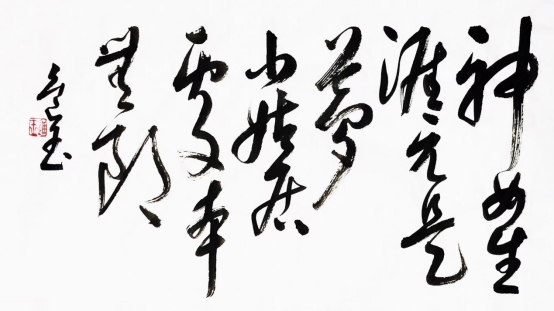 神女生
涯元是
夢
小姑居
處本
無郎